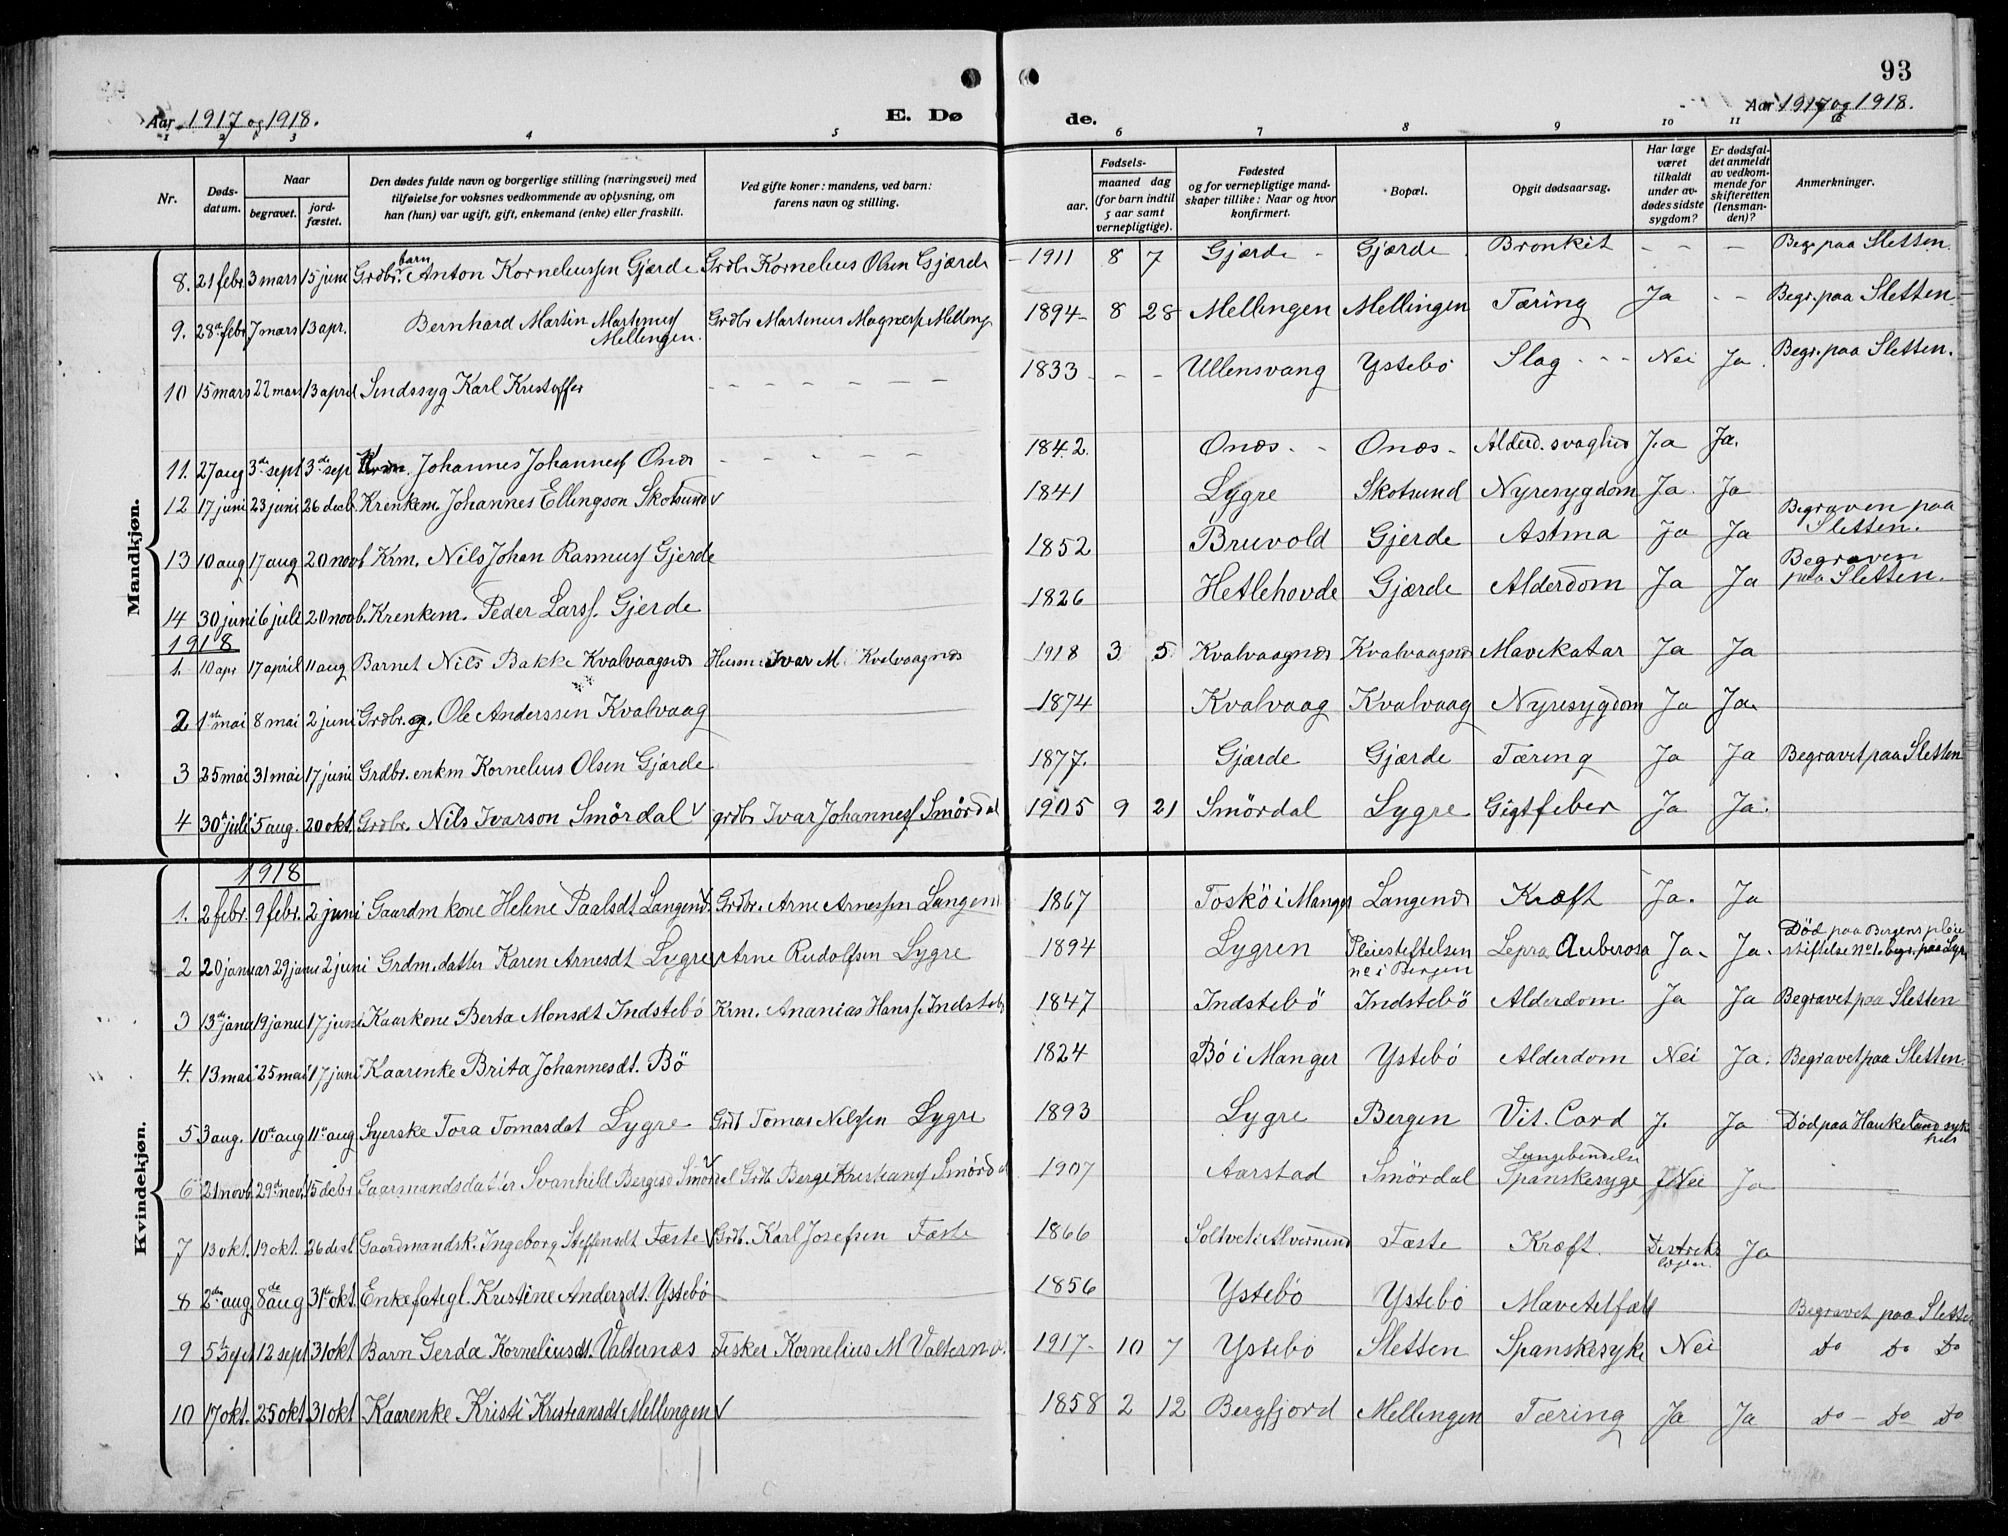 93
Aar 1917 og 1918.
E. Dø
de.
Aar 1917 og 1918.
1 2 3 4 5 6 7 8 9 10 11 12
Nr.
Døds-
datum.
Naar
begravet.
jord-
fæstet.
Den dødes fulde navn og borgerlige stilling (næringsvei) med
tilføielse for voksnes vedkommende av oplysning, om
han (hun) var ugift, gift, enkemand (enke) eller fraskilt.
Ved gifte koner: mandens, ved barn:
farens navn og stilling.
Fødsels-
aar.
maaned dag
(for barn indtil
5 aar samt
vernepligtige).
Fødested
og for vernepligtige mand-
skaper tillike: Naar og hvor
konfirmert.
Bopæl.
Opgit dødsaarsag.
Har læge
været
tilkaldt
under av-
dødes sidste
sygdom?
Er dødsfal-
det anmeldt
av vedkom-
mende for
skifteretten
(lensman-
den)?
Anmerkninger.
Mandkjøn.
8. 21 febr. 3 mars 15 juni Grdbr. barn Anton Korneliussen Gjærde Grdbr Kornelius Olsen Gjærde 1911 8 7 Gjærde - Gjærde Bronkit - - - Begr. paa Sletten.
9. 28de febr 7 mars 13 apr. Bernhard Martin Martenusf Mellingen. Grdbr Martenus Magnesf. Melling 1894 - 8 28 Mellingen Mellingen Tæring Ja - - Begr. paa Sletten.
10 15 mars 22 mars 13 april Sindssyg Karl Kristoffer - - - - - - - 1833 - - - Ullensvang Ystebö Slag - - - Nei Ja. Begr. paa Sletten.
11. 27 aug 3de sept 3de sep Johannes Johannesf Onæs - - - - - - 1842. Onæs. - - Onæs - Alderd. svaghed Ja Ja.
12 17 juni 23 juni 26 decb. Krenkem. Johannes Ellingson Skotsund v 1841 Lygre Skotsund Nyresygdom Ja. Ja
13 10 aug 17 aug 20 novb Krm. Nils Johan Rasmusf Gjerde 1852 Bruvold Gjerde Astma Ja Ja Begraven paa Sletten.
14 30 juni 6 juli 20 novb. Krenkem. Peder Larsf. Gjerde 1826 Hetlehovde Gjærde Alderdom Ja Ja Begraven paa Sletten.
1918
1. 10 apr 17 april 11 aug Barnet Nils Bakke Kvalvaagnes Husm. Ivar M. Kvalvaagnæs 1918 3 5 Kvalvaagnæs Kvalvaagnæs Mavekatar Ja Ja
2 1ste mai 8 mai 2 juni Grdbr. g. Ole Anderssen Kvalvaag 1874 Kvalvaag Kvalvaag Nyresygdom Ja Ja.
3 25 mai 31 mai 17 juni Grdbr. enkm Kornelius Olsen Gjærde 1877. Gjærde Gjærde Tæring Ja Ja Begravet paa Sletten
4 30te juli 5 aug. 20 okt. Grdbr. Nils Ivarson Smördal v grdbr Ivar Johannesf Smördal 1905 9 21 Smördal Lygre Gigtfeber Ja Ja.
Kvindekjøn.
1918
1. 2 febr. 9 febr. 2 juni Gaardm kone Helene Paalsdt Langenes v Grdbr. Arne Arnessen Langen 1867 Toskö i Manger Langenes Kræft Ja. Ja
2 20 januar 29 janu 2 juni Grdm. datter Karen Arnesdt Lygre v Arne Rudolfsen Lygre 1894 Lygren Pleiestiftelsen no i Bergen Lepra Auberosa Ja. Ja. Död paa Bergens pleie stiftelse No 1. begr. paa Lyg
3 13de janu 19 janu 17 juni Kaarkone Berta Monsdt Indstebö Krm. Ananias Hansf. Indsteb 1847 Indstebö Indstebö Alderdom Ja Ja Begravet paa Sletten
4. 13 mai 25 mai 17 juni Kaarenke Brita Johannesdt. Bö 1824 Bö i Manger Ystebö Alderdom Nei Ja. Begravet paa Sletten.
5 3 aug. 10de aug 11te aug Syerske Tora Tomasdat Lygre Grdb Tomas Nilssen Lygre 1893 Lygre Bergen Vit. Cord J. Ja Död paa Haukeland syke hus
6 21 novb. 29de nov. 15 debr Gaarmandsdatter Svanhild Bergesd Smördal v Grdb Berge Kristiansf Smördal 1907 Aarstad Smördal Lungebendelse Spanskesyge Nei Ja
7 13 okt. 19 okt. 26 des Gaardmandsk. Ingeborg Steffensdt Fæste v Grdb. Karl Josefsen Fæste 1866 Soltvet i Alversund Fæste Kræft. Distrikts lægen Ja
8 2den aug 8de aug 31te okt. Enke fatigl. Kristine Andersdt. Ystebö 1856 Ystebö Ystebö Mavetilfæll Begravet paa Sletten
9 5te sept 12 sept 31 okt Barn Gerda Korneliusdt. Valternæs Fisker Kornelius M Valternæ. 1917 - 10 7 Ystebö Sletten Spanskesyke Nei Do Do Do
10 17 okt. 25 okt 31 okt Kaarenke Kristi Kristiansdt Mellingen v 1858 2 12 Bergfjord Mellingen Tæring Ja Ja Do - Do Do